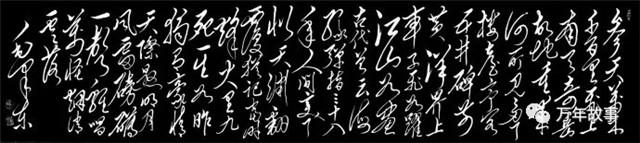 参天万木
千百里飞上
南天奇岳
故地重来
何所见多了
楼台亭阁
五井碑前
黄洋界上
车子飞如跃
江山如画
古代曾云海
绿弹指三十八
年人间变了
似天渊翻
覆犹记当时
烽火里九
死一生如昨
独有豪情
天际悬明月
风雷磅礴
一声鸡唱
万怪烟消
云落
毛泽东
万年故事